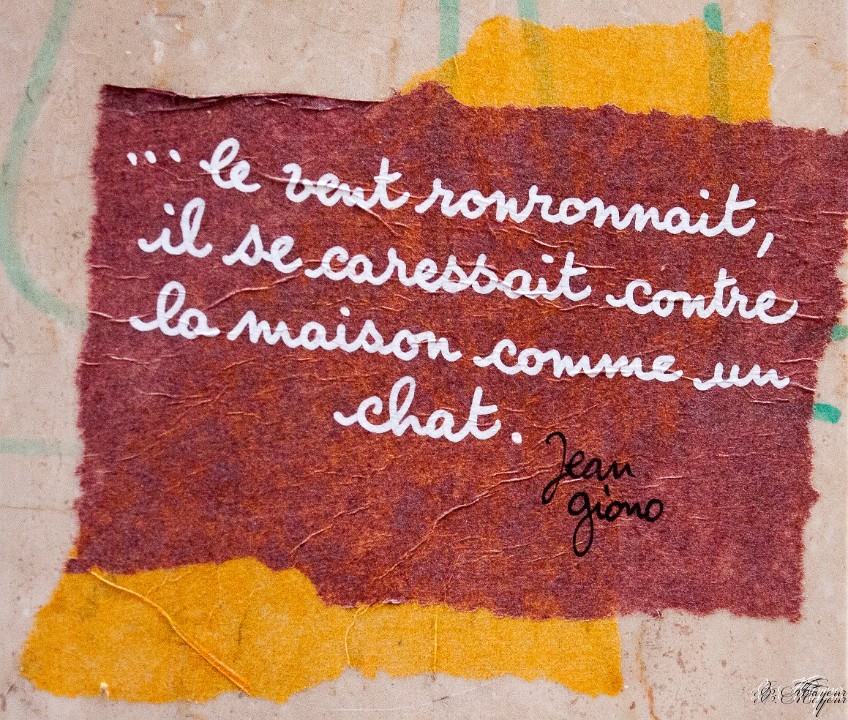 ... le vent ronronnait,
il se caressait contre
la maison comme un
chat.
Jean
giono